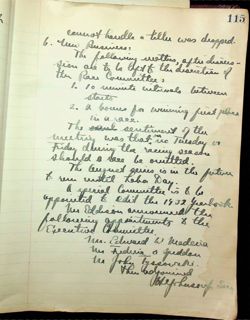 115
cannot handle a tiller was dropped.
6. New Business:
The following matters, after discus-
sion are to be left to the discretion of
the Race Committee:
1. 10 minute intervals between
starts
2. a bonus for winning first place
in a race.
The sentiment of the
meeting was that no Tuesday or
Friday during the racing season
should a race be omitted.
The August series is in the future
to run until Labor Day.
A special Committee is to be
appointed to edit the 1933 Yearbook.
Mr. Eddison announced the
following appointments to the
Executive Committee
Mr. Edward W. Madeira
Mr. S.
Mr. John
Then adjourned
Sec.